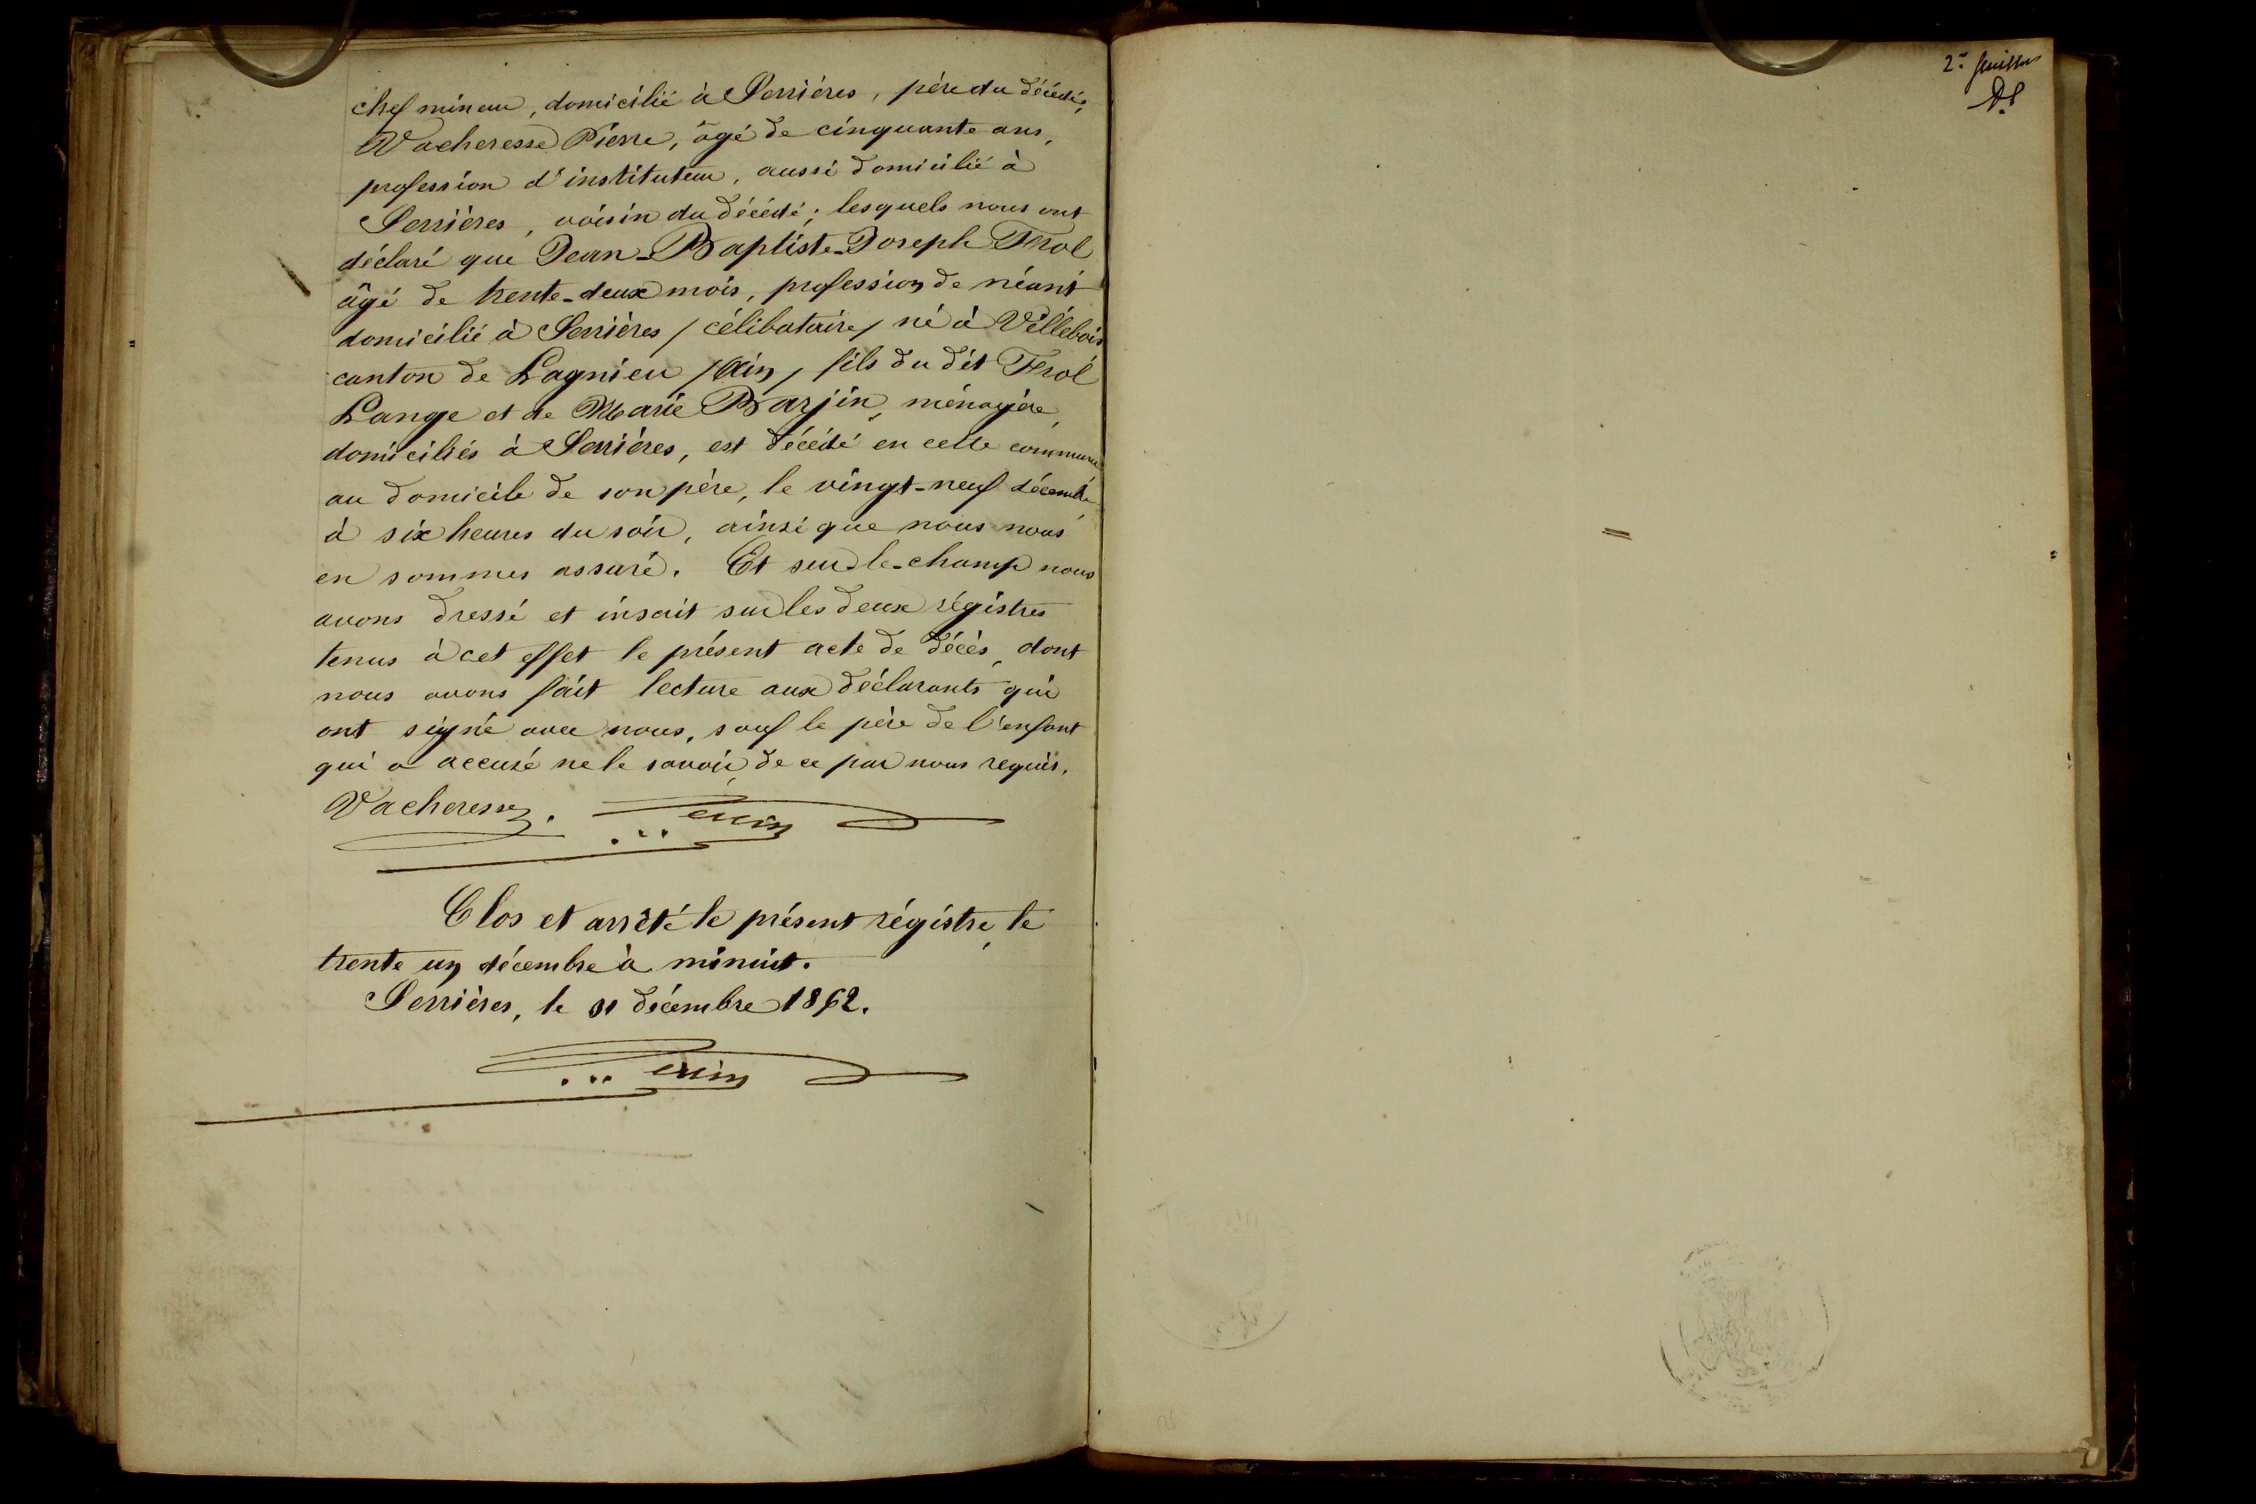 chef mineur, domicilié à Serrières, père du décédé,
Vacheresse Pierre, âgé de cinquante ans,
profession d'instituteur, aussi domicilié à
Serrières, voisin du décédé; lesquels nous ont
déclaré que Jean-Baptiste-Joseph Frol
âgé de trente-deux mois, profession de néant
domicilié à Serrières / célibataire / né à Villebois
canton de Lagnieu / Ain / fils du dit Frol
Lange et de Marie Barjin, ménagère,
domiciliés à Serrières, est décédé en cette commune
au domicile de son père, le vingt-neuf décembre
à six heures du soir, ainsi que nous nous
en sommes assuré. Et sur le-champ nous
avons dressé et inscrit sur les deux régistres
tenus à cet effet le présent acte de décès, dont
nous avons fait lecture aux déclarants qui
ont signé avec nous, sauf le père de l'enfant
qui a accusé ne le savoir, de ce par nous requis.
Vacheresse.
Clos et arrêté le présent régistre, le
trente un décembre à minuit.
Serrières, le 31 décembre 1862.
2e feuillet